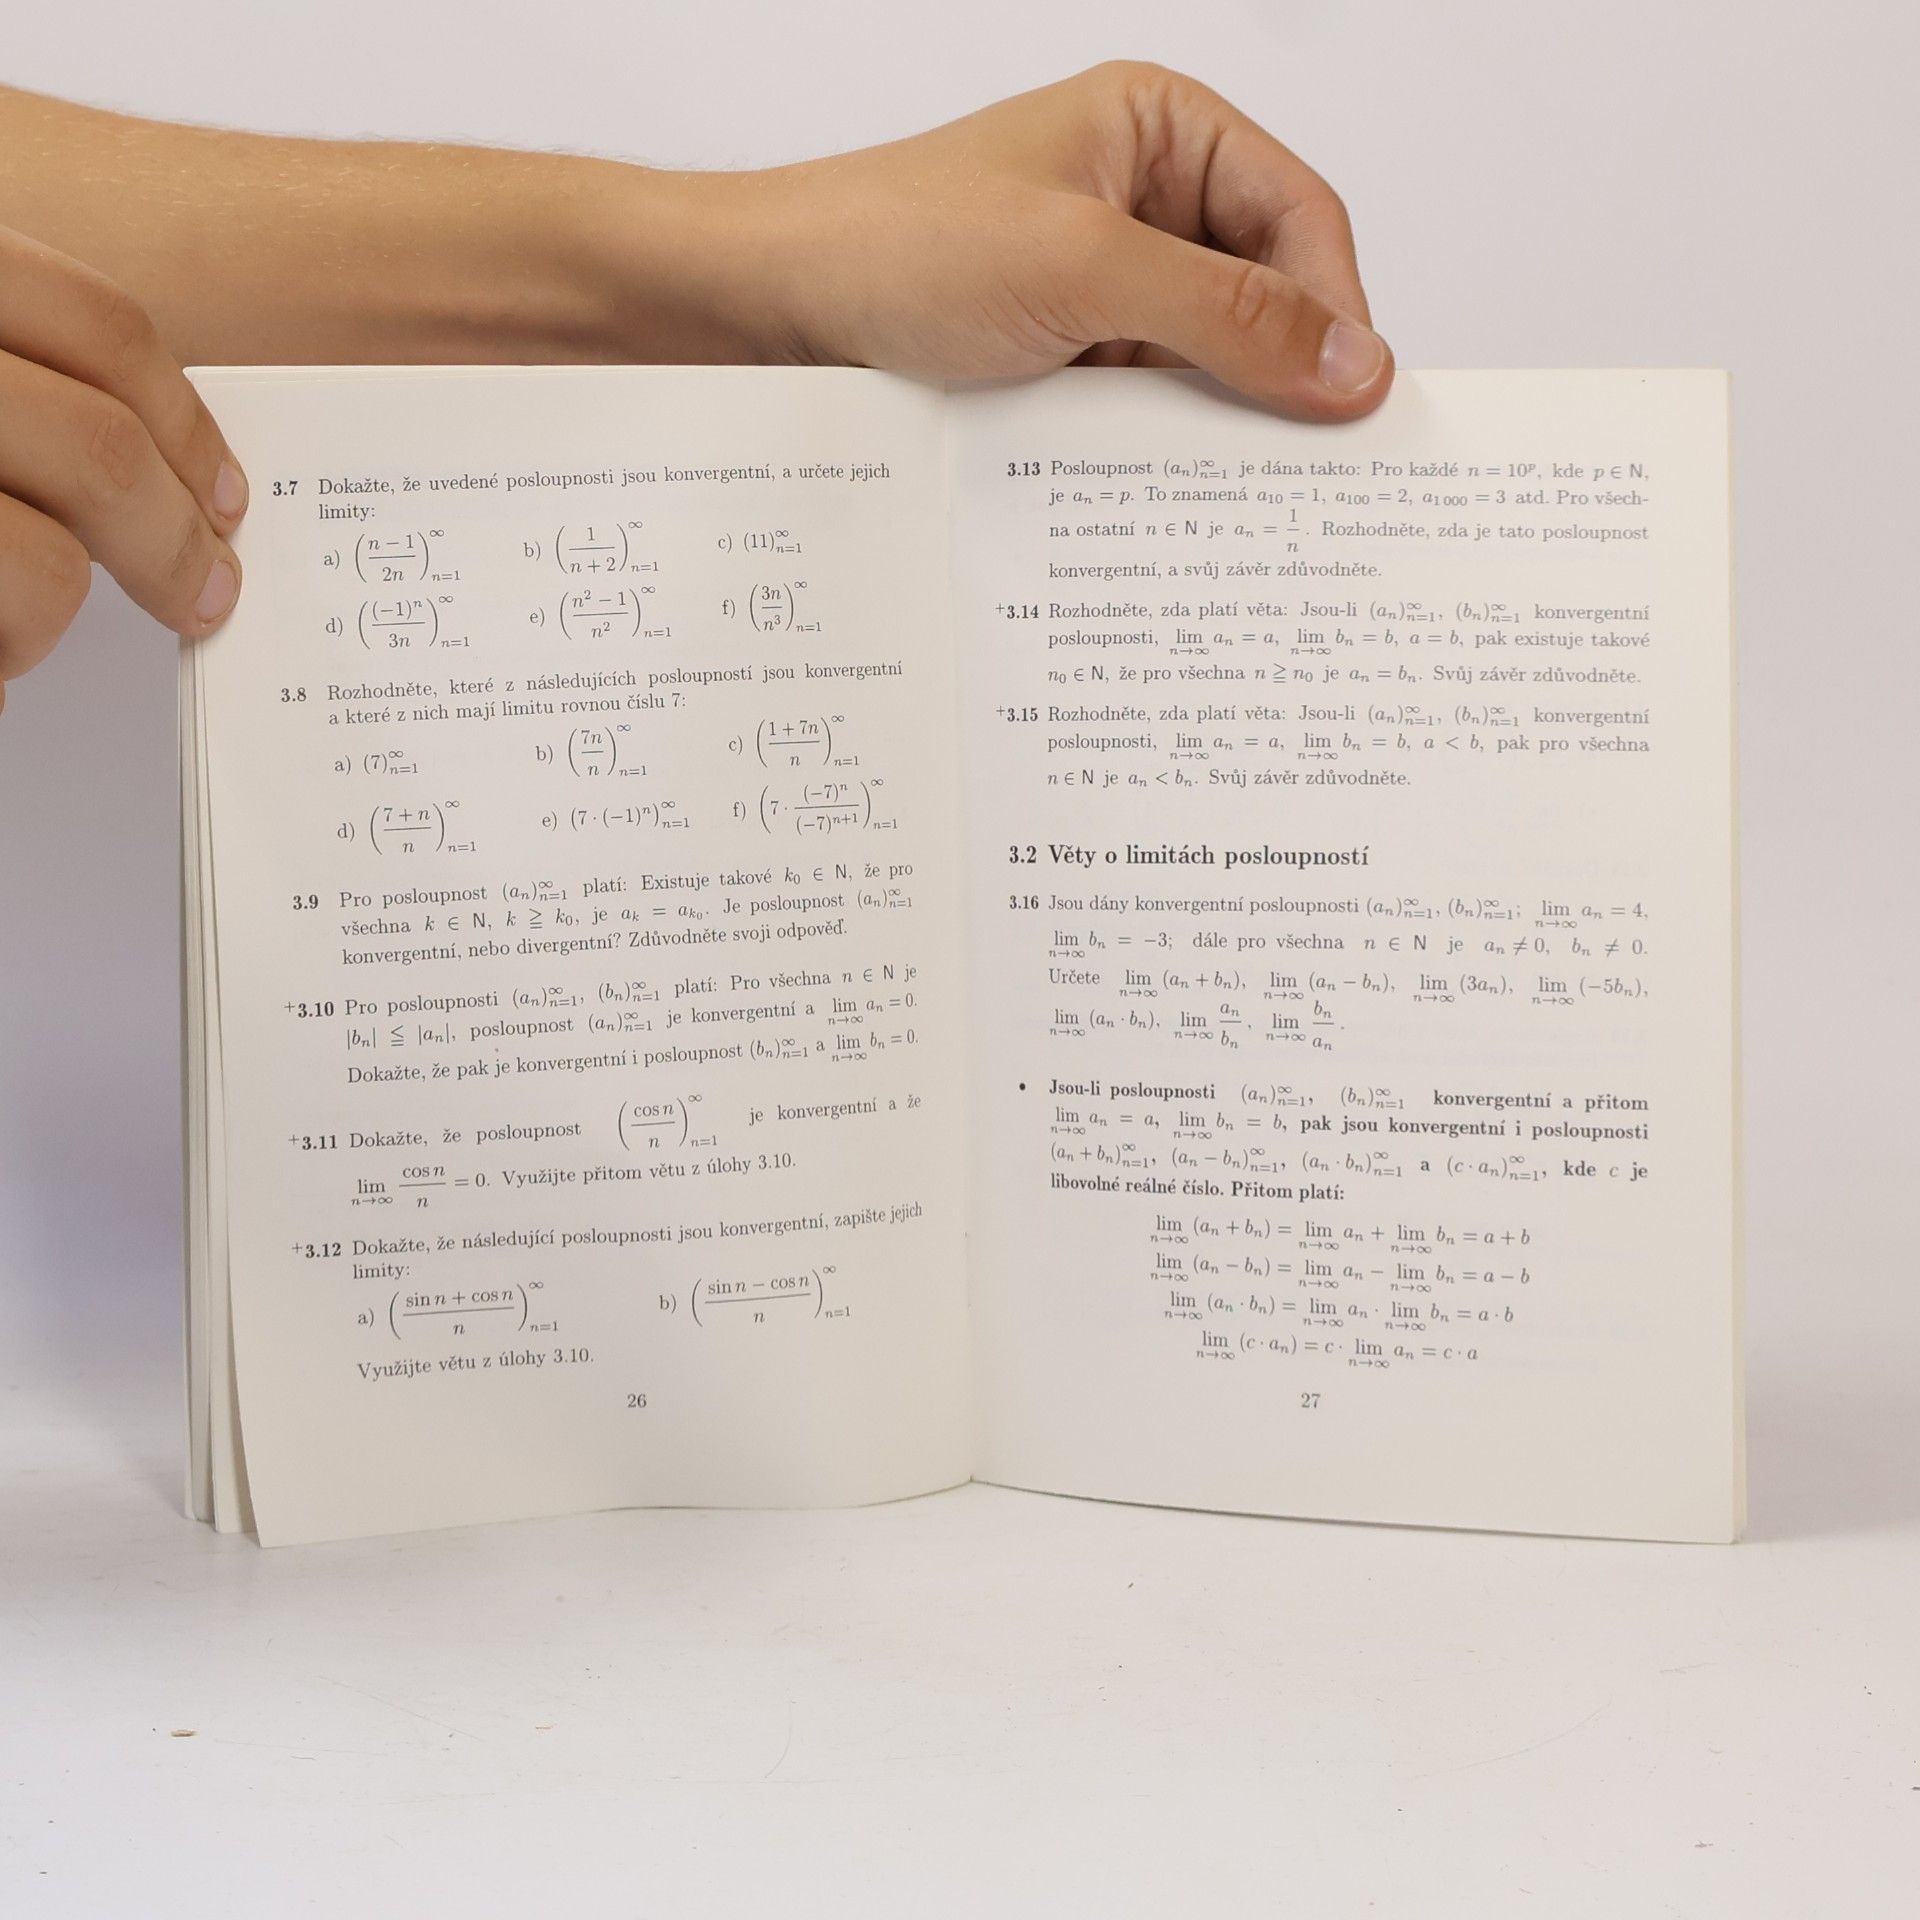 3.7 Dokažte, že uvedené posloupnosti jsou konvergentní, a určete jejich
limity:
a) $\left(\frac{n-1}{2n}\right)_{n=1}^{\infty}$ b) $\left(\frac{1}{n+2}\right)_{n=1}^{\infty}$ c) $(11)_{n=1}^{\infty}$
d) $\left(\frac{(-1)^n}{3n}\right)_{n=1}^{\infty}$ e) $\left(\frac{n^2-1}{n^2}\right)_{n=1}^{\infty}$ f) $\left(\frac{3n}{n^3}\right)_{n=1}^{\infty}$
3.8 Rozhodněte, které z následujících posloupností jsou konvergentní
a které z nich mají limitu rovnou číslu 7:
a) $(7)_{n=1}^{\infty}$ b) $\left(\frac{7n}{n}\right)_{n=1}^{\infty}$ c) $\left(\frac{1+7n}{n}\right)_{n=1}^{\infty}$
d) $\left(\frac{7+n}{n}\right)_{n=1}^{\infty}$ e) $(7\cdot(-1)^n)_{n=1}^{\infty}$ f) $\left(7\cdot\frac{(-7)^n}{(-7)^{n+1}}\right)_{n=1}^{\infty}$
3.9 Pro posloupnost $(a_n)_{n=1}^{\infty}$ platí: Existuje takové $k_0 \in \mathsf{N}$, že pro
všechna $k \in \mathsf{N}$, $k \geqq k_0$, je $a_k = a_{k_0}$. Je posloupnost $(a_n)_{n=1}^{\infty}$
konvergentní, nebo divergentní? Zdůvodněte svoji odpověď.
+3.10 Pro posloupnosti $(a_n)_{n=1}^{\infty}$, $(b_n)_{n=1}^{\infty}$ platí: Pro všechna $n \in \mathsf{N}$ je
$|b_n| \leqq |a_n|$, posloupnost $(a_n)_{n=1}^{\infty}$ je konvergentní a $\lim_{n\to\infty} a_n = 0$.
Dokažte, že pak je konvergentní i posloupnost $(b_n)_{n=1}^{\infty}$ a $\lim_{n\to\infty} b_n = 0$.
+3.11 Dokažte, že posloupnost $\left(\frac{\cos n}{n}\right)_{n=1}^{\infty}$ je konvergentní a že
$\lim_{n\to\infty} \frac{\cos n}{n} = 0$. Využijte přitom větu z úlohy 3.10.
+3.12 Dokažte, že následující posloupnosti jsou konvergentní, zapište jejich
limity:
a) $\left(\frac{\sin n + \cos n}{n}\right)_{n=1}^{\infty}$ b) $\left(\frac{\sin n - \cos n}{n}\right)_{n=1}^{\infty}$
Využijte větu z úlohy 3.10.
26
3.13 Posloupnost $(a_n)_{n=1}^{\infty}$ je dána takto: Pro každé $n = 10^p$, kde $p \in \mathsf{N}$,
je $a_n = p$. To znamená $a_{10} = 1$, $a_{100} = 2$, $a_{1\,000} = 3$ atd. Pro všech-
na ostatní $n \in \mathsf{N}$ je $a_n = \frac{1}{n}$. Rozhodněte, zda je tato posloupnost
konvergentní, a svůj závěr zdůvodněte.
+3.14 Rozhodněte, zda platí věta: Jsou-li $(a_n)_{n=1}^{\infty}$, $(b_n)_{n=1}^{\infty}$ konvergentní
posloupnosti, $\lim_{n\to\infty} a_n = a$, $\lim_{n\to\infty} b_n = b$, $a = b$, pak existuje takové
$n_0 \in \mathsf{N}$, že pro všechna $n \geqq n_0$ je $a_n = b_n$. Svůj závěr zdůvodněte.
+3.15 Rozhodněte, zda platí věta: Jsou-li $(a_n)_{n=1}^{\infty}$, $(b_n)_{n=1}^{\infty}$ konvergentní
posloupnosti, $\lim_{n\to\infty} a_n = a$, $\lim_{n\to\infty} b_n = b$, $a < b$, pak pro všechna
$n \in \mathsf{N}$ je $a_n < b_n$. Svůj závěr zdůvodněte.
3.2 Věty o limitách posloupností
3.16 Jsou dány konvergentní posloupnosti $(a_n)_{n=1}^{\infty}$, $(b_n)_{n=1}^{\infty}$; $\lim_{n\to\infty} a_n = 4$,
$\lim_{n\to\infty} b_n = -3$; dále pro všechna $n \in \mathsf{N}$ je $a_n \neq 0$, $b_n \neq 0$.
Určete $\lim_{n\to\infty} (a_n + b_n)$, $\lim_{n\to\infty} (a_n - b_n)$, $\lim_{n\to\infty} (3a_n)$, $\lim_{n\to\infty} (-5b_n)$,
$\lim_{n\to\infty} (a_n \cdot b_n)$, $\lim_{n\to\infty} \frac{a_n}{b_n}$, $\lim_{n\to\infty} \frac{b_n}{a_n}$.
• Jsou-li posloupnosti $(a_n)_{n=1}^{\infty}$, $(b_n)_{n=1}^{\infty}$ konvergentní a přitom
$\lim_{n\to\infty} a_n = a$, $\lim_{n\to\infty} b_n = b$, pak jsou konvergentní i posloupnosti
$(a_n + b_n)_{n=1}^{\infty}$, $(a_n - b_n)_{n=1}^{\infty}$, $(a_n \cdot b_n)_{n=1}^{\infty}$ a $(c \cdot a_n)_{n=1}^{\infty}$, kde $c$ je
libovolné reálné číslo. Přitom platí:
$\lim_{n\to\infty} (a_n + b_n) = \lim_{n\to\infty} a_n + \lim_{n\to\infty} b_n = a + b$
$\lim_{n\to\infty} (a_n - b_n) = \lim_{n\to\infty} a_n - \lim_{n\to\infty} b_n = a - b$
$\lim_{n\to\infty} (a_n \cdot b_n) = \lim_{n\to\infty} a_n \cdot \lim_{n\to\infty} b_n = a \cdot b$
$\lim_{n\to\infty} (c \cdot a_n) = c \cdot \lim_{n\to\infty} a_n = c \cdot a$
27